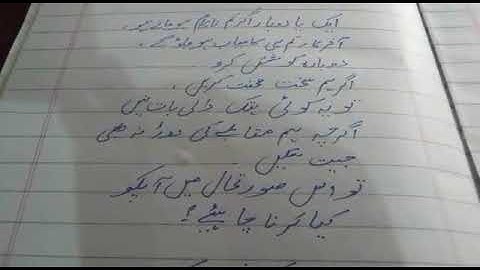 ایک یا دو بار اگر تم ناکام ہو جاتے ہو۔
آخر کار تم ہی کامیاب ہو جاؤ گے۔
دوبارہ کوشش کرو
اگر ہم سخت محنت کریں۔
تو یہ کوئی ہتک والی بات نہیں
اگرچہ ہم مقابلے کی دوڑ نہ بھی
جیت سکیں
تو اس صورتحال میں آپکو
کیا کرنا چاہئیے؟